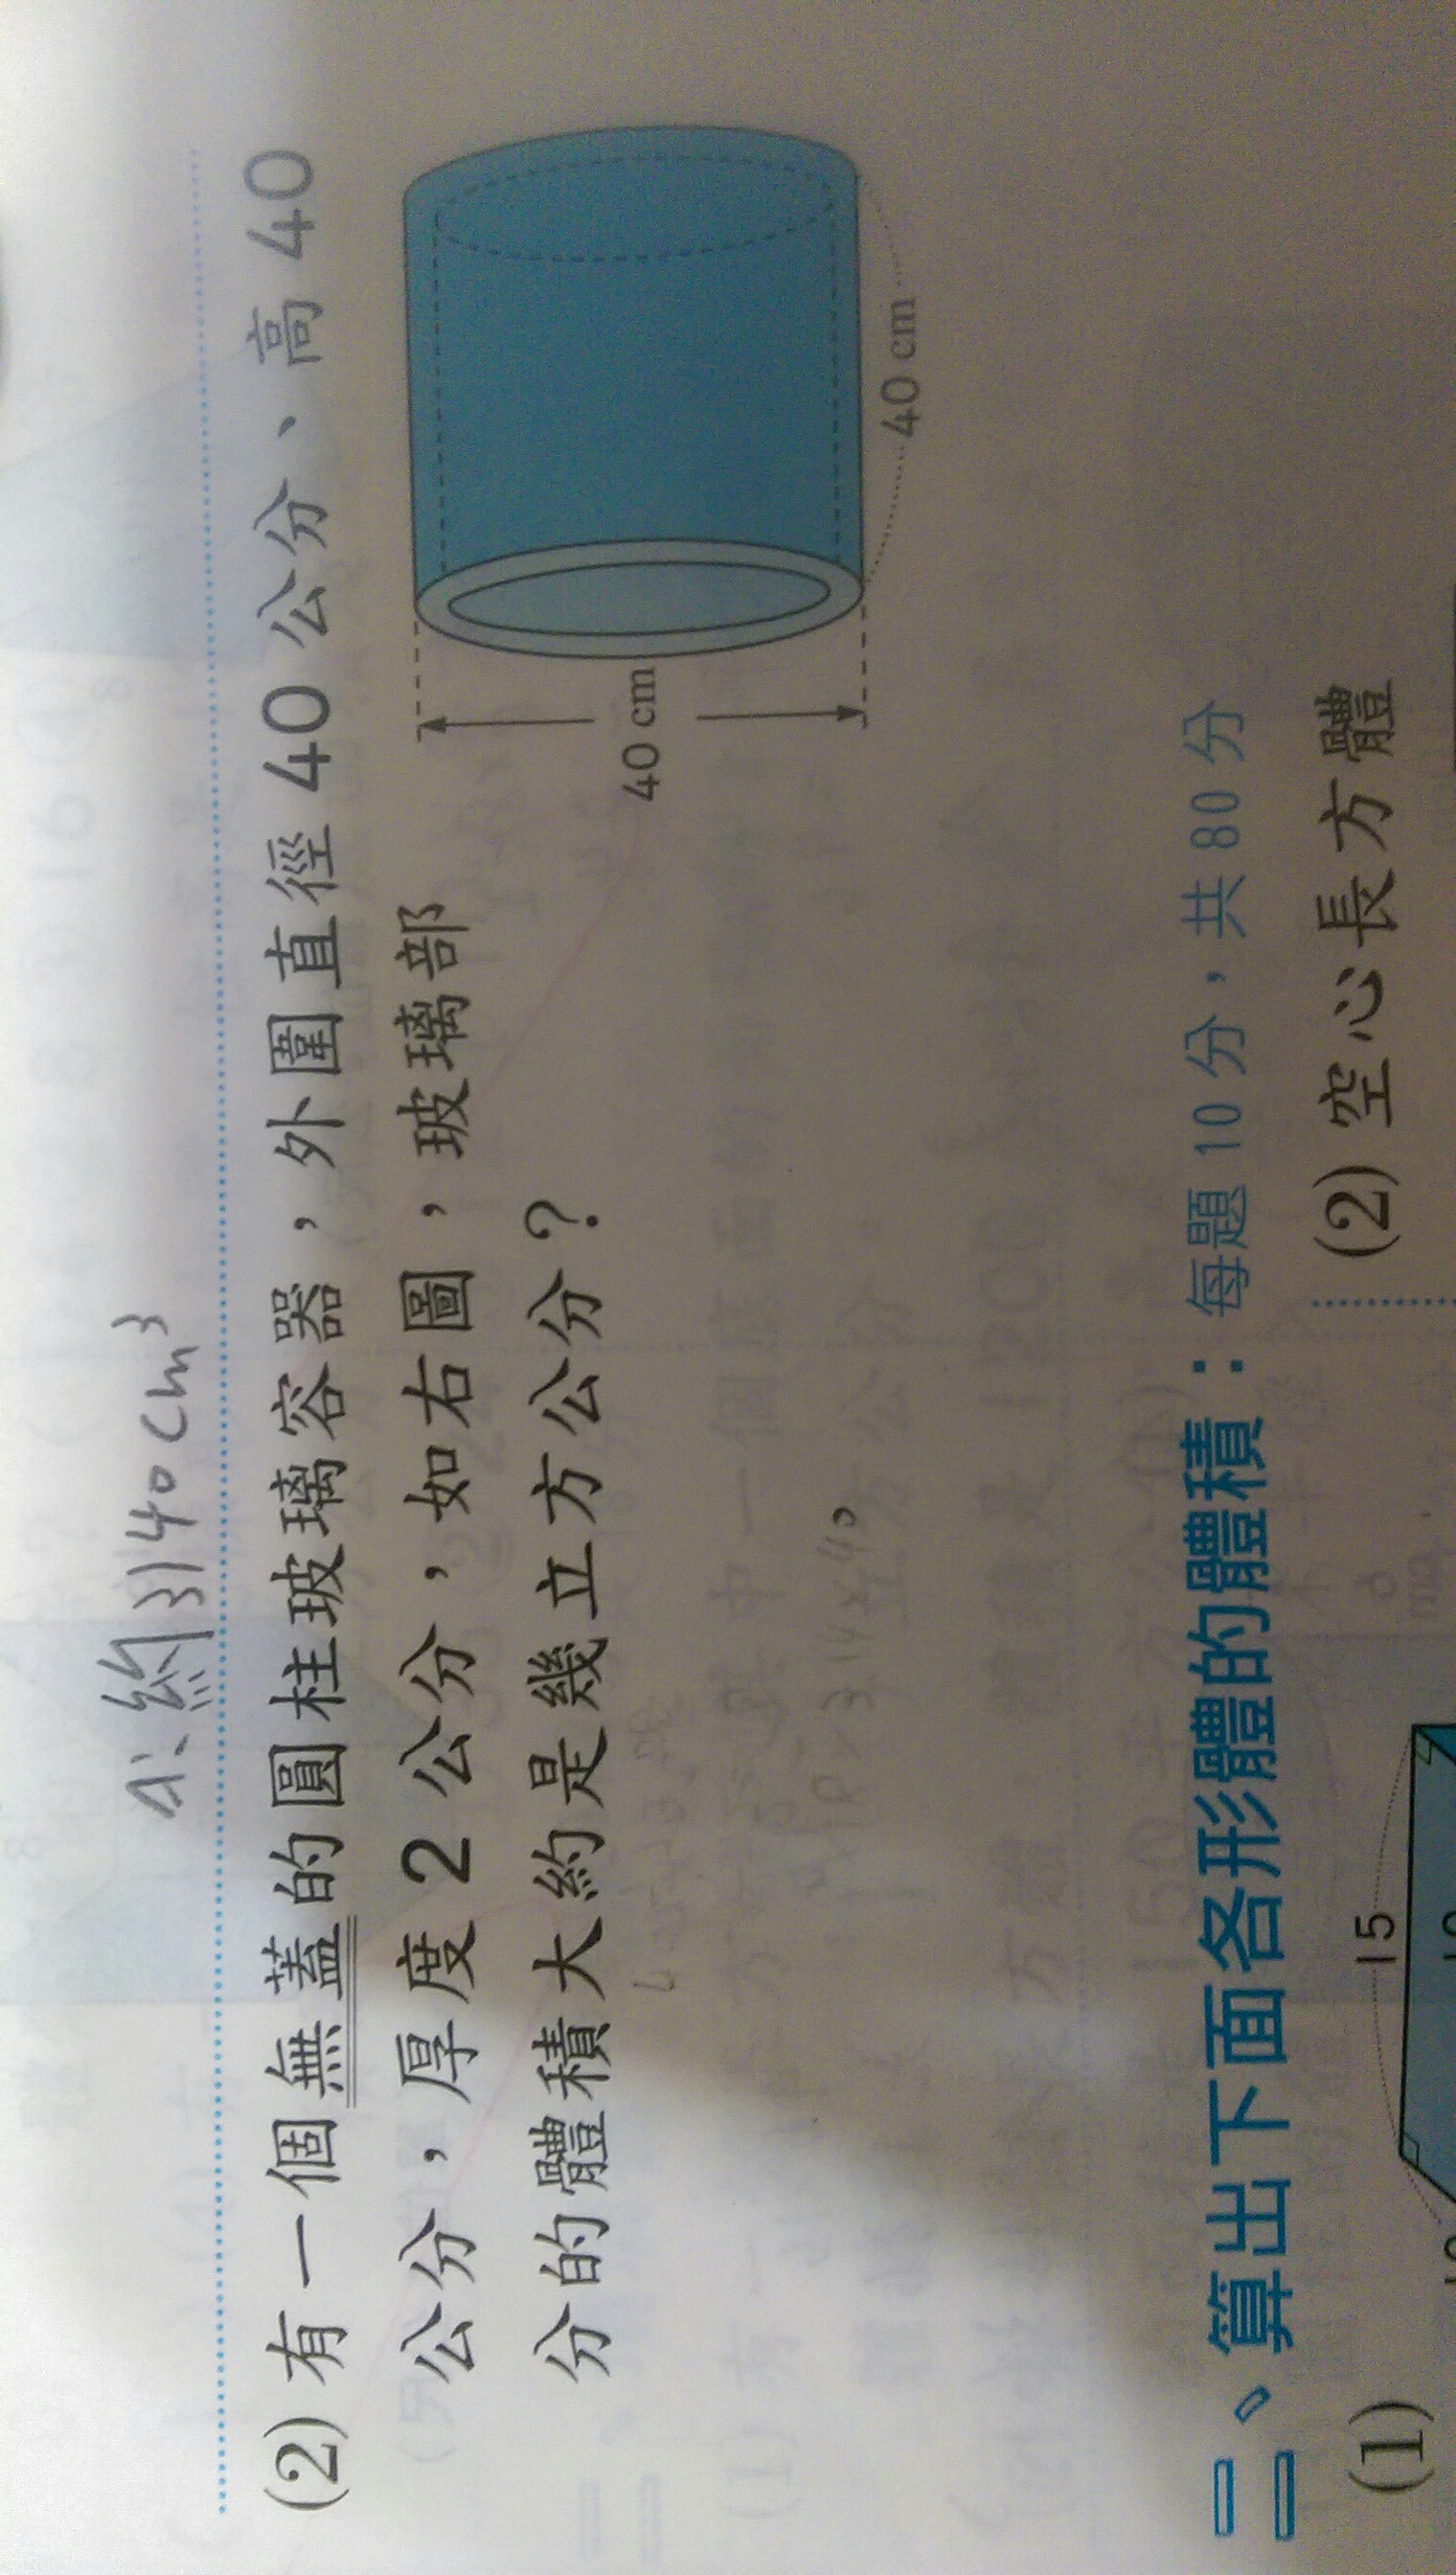 A:約3140cm³
(2)有一個無蓋的圓柱玻璃容器，外圍直徑40公分、高40
公分，厚度2公分，如右圖，玻璃部
分的體積大約是幾立方公分？
40 cm
40 cm
二、算出下面各形體的體積：每題10分，共80分
(1)
15
(2)空心長方體